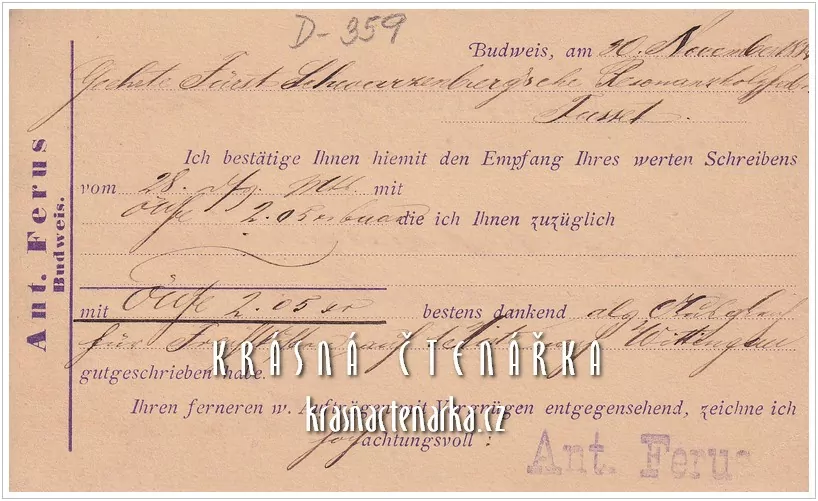 D-359
Budweis, am 20. November
Geehrte Fürst Schwarzenberg'sche Resonanzholzfabr.
Tusset.
Ant. Ferus
Budweis.
Ich bestätige Ihnen hiemit den Empfang Ihres werten Schreibens
vom 28. mit
2.05 die ich Ihnen zuzüglich
mit 2.05 bestens dankend als
für Wittingau
KRÁSNÁ ČTENÁŘKA
gutgeschrieben habe.
Ihren ferneren w. Aufträgen mit Vergnügen entgegensehend, zeichne ich
krasnactenarka.cz
hochachtungsvoll:
Ant. Ferus